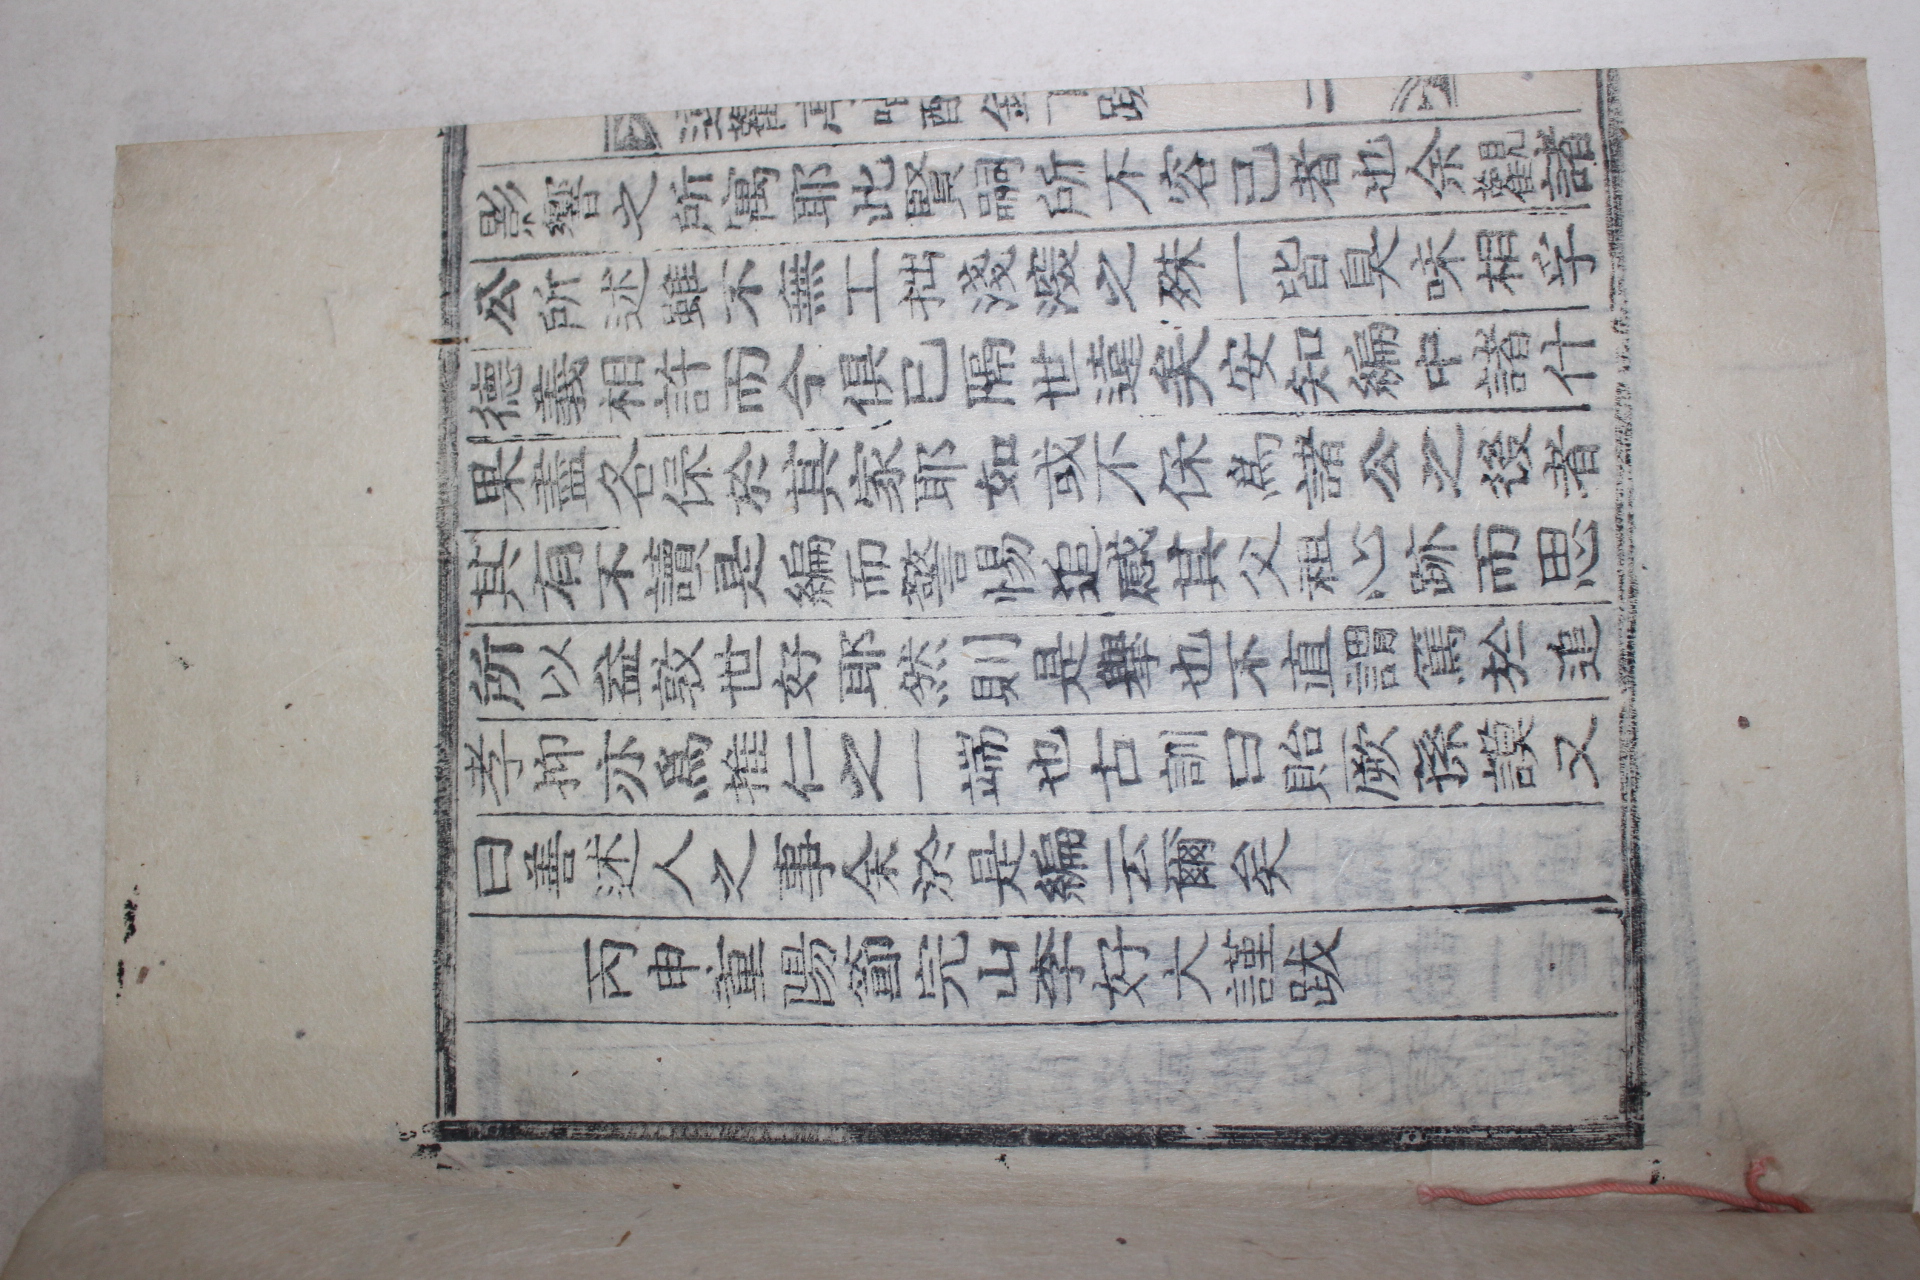 跋 二
影響之所寓耶此賢嗣所不容已者也余觀諸
公所述雖不無工拙淺深之殊一皆臭味相孚
德義相許而今俱已隔世違矣安知編中諸什
果盡各保於其家耶如或不保爲諸公之後者
其有不讀是編而警惕追感其父祖心跡而思
所以益敦世好耶然則是擧也不直謂篤於追
孝抑亦爲推仁之一端也古訓曰貽厥孫謨又
曰善述人之事余於是編云爾矣
丙申重陽節完山李好大謹跋